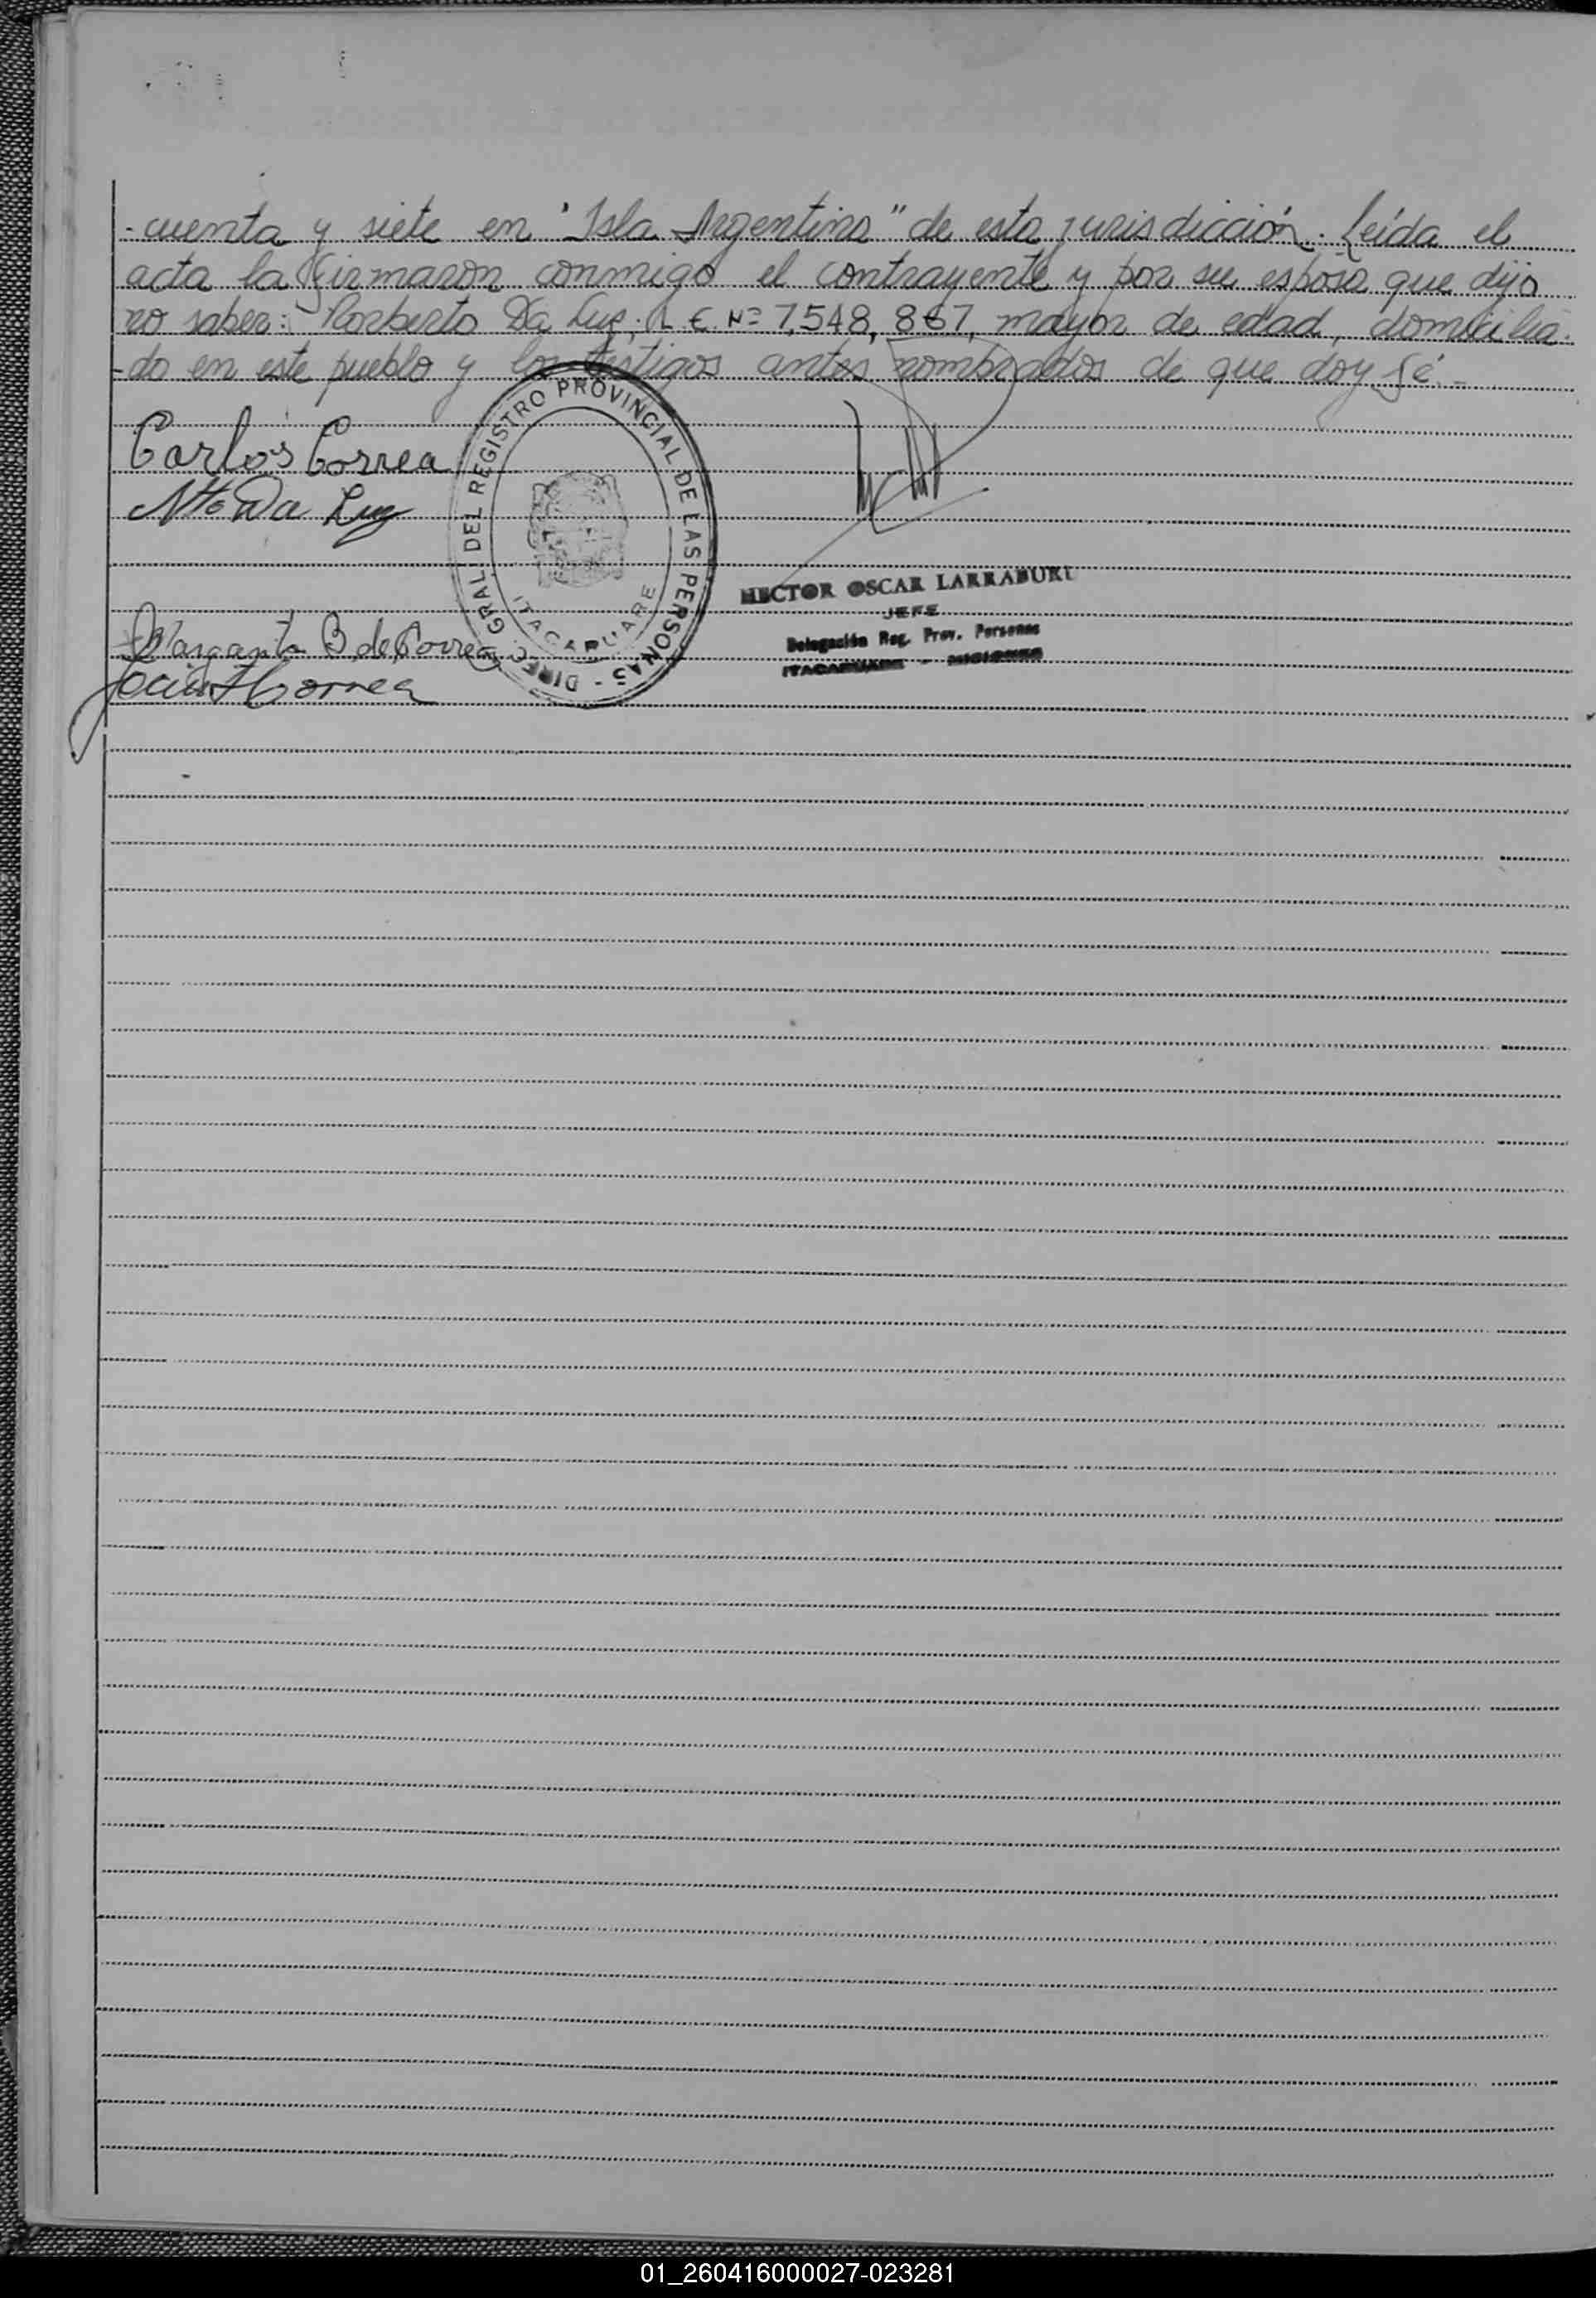 -cuenta y siete en "Isla Argentina" de esta jurisdicción. Leída el
acta la firmaron conmigo el contrayente y por su esposa que dijo
no saber: Norberto Da Luz, L.E. Nº 7.548,867, mayor de edad, domicilia-
-do en este pueblo y los testigos antes nombrados de que doy fé.-
Carlos Correa
Nto Da Luz
DIREC. GRAL. DEL REGISTRO PROVINCIAL DE LAS PERSONAS -
ITACARUARE
HECTOR OSCAR LARRABURU
JEFE
Delegación Reg. Prov. Personas
ITACARUARE - MISIONES
Margarita B de Correa
Correa
01_260416000027-023281